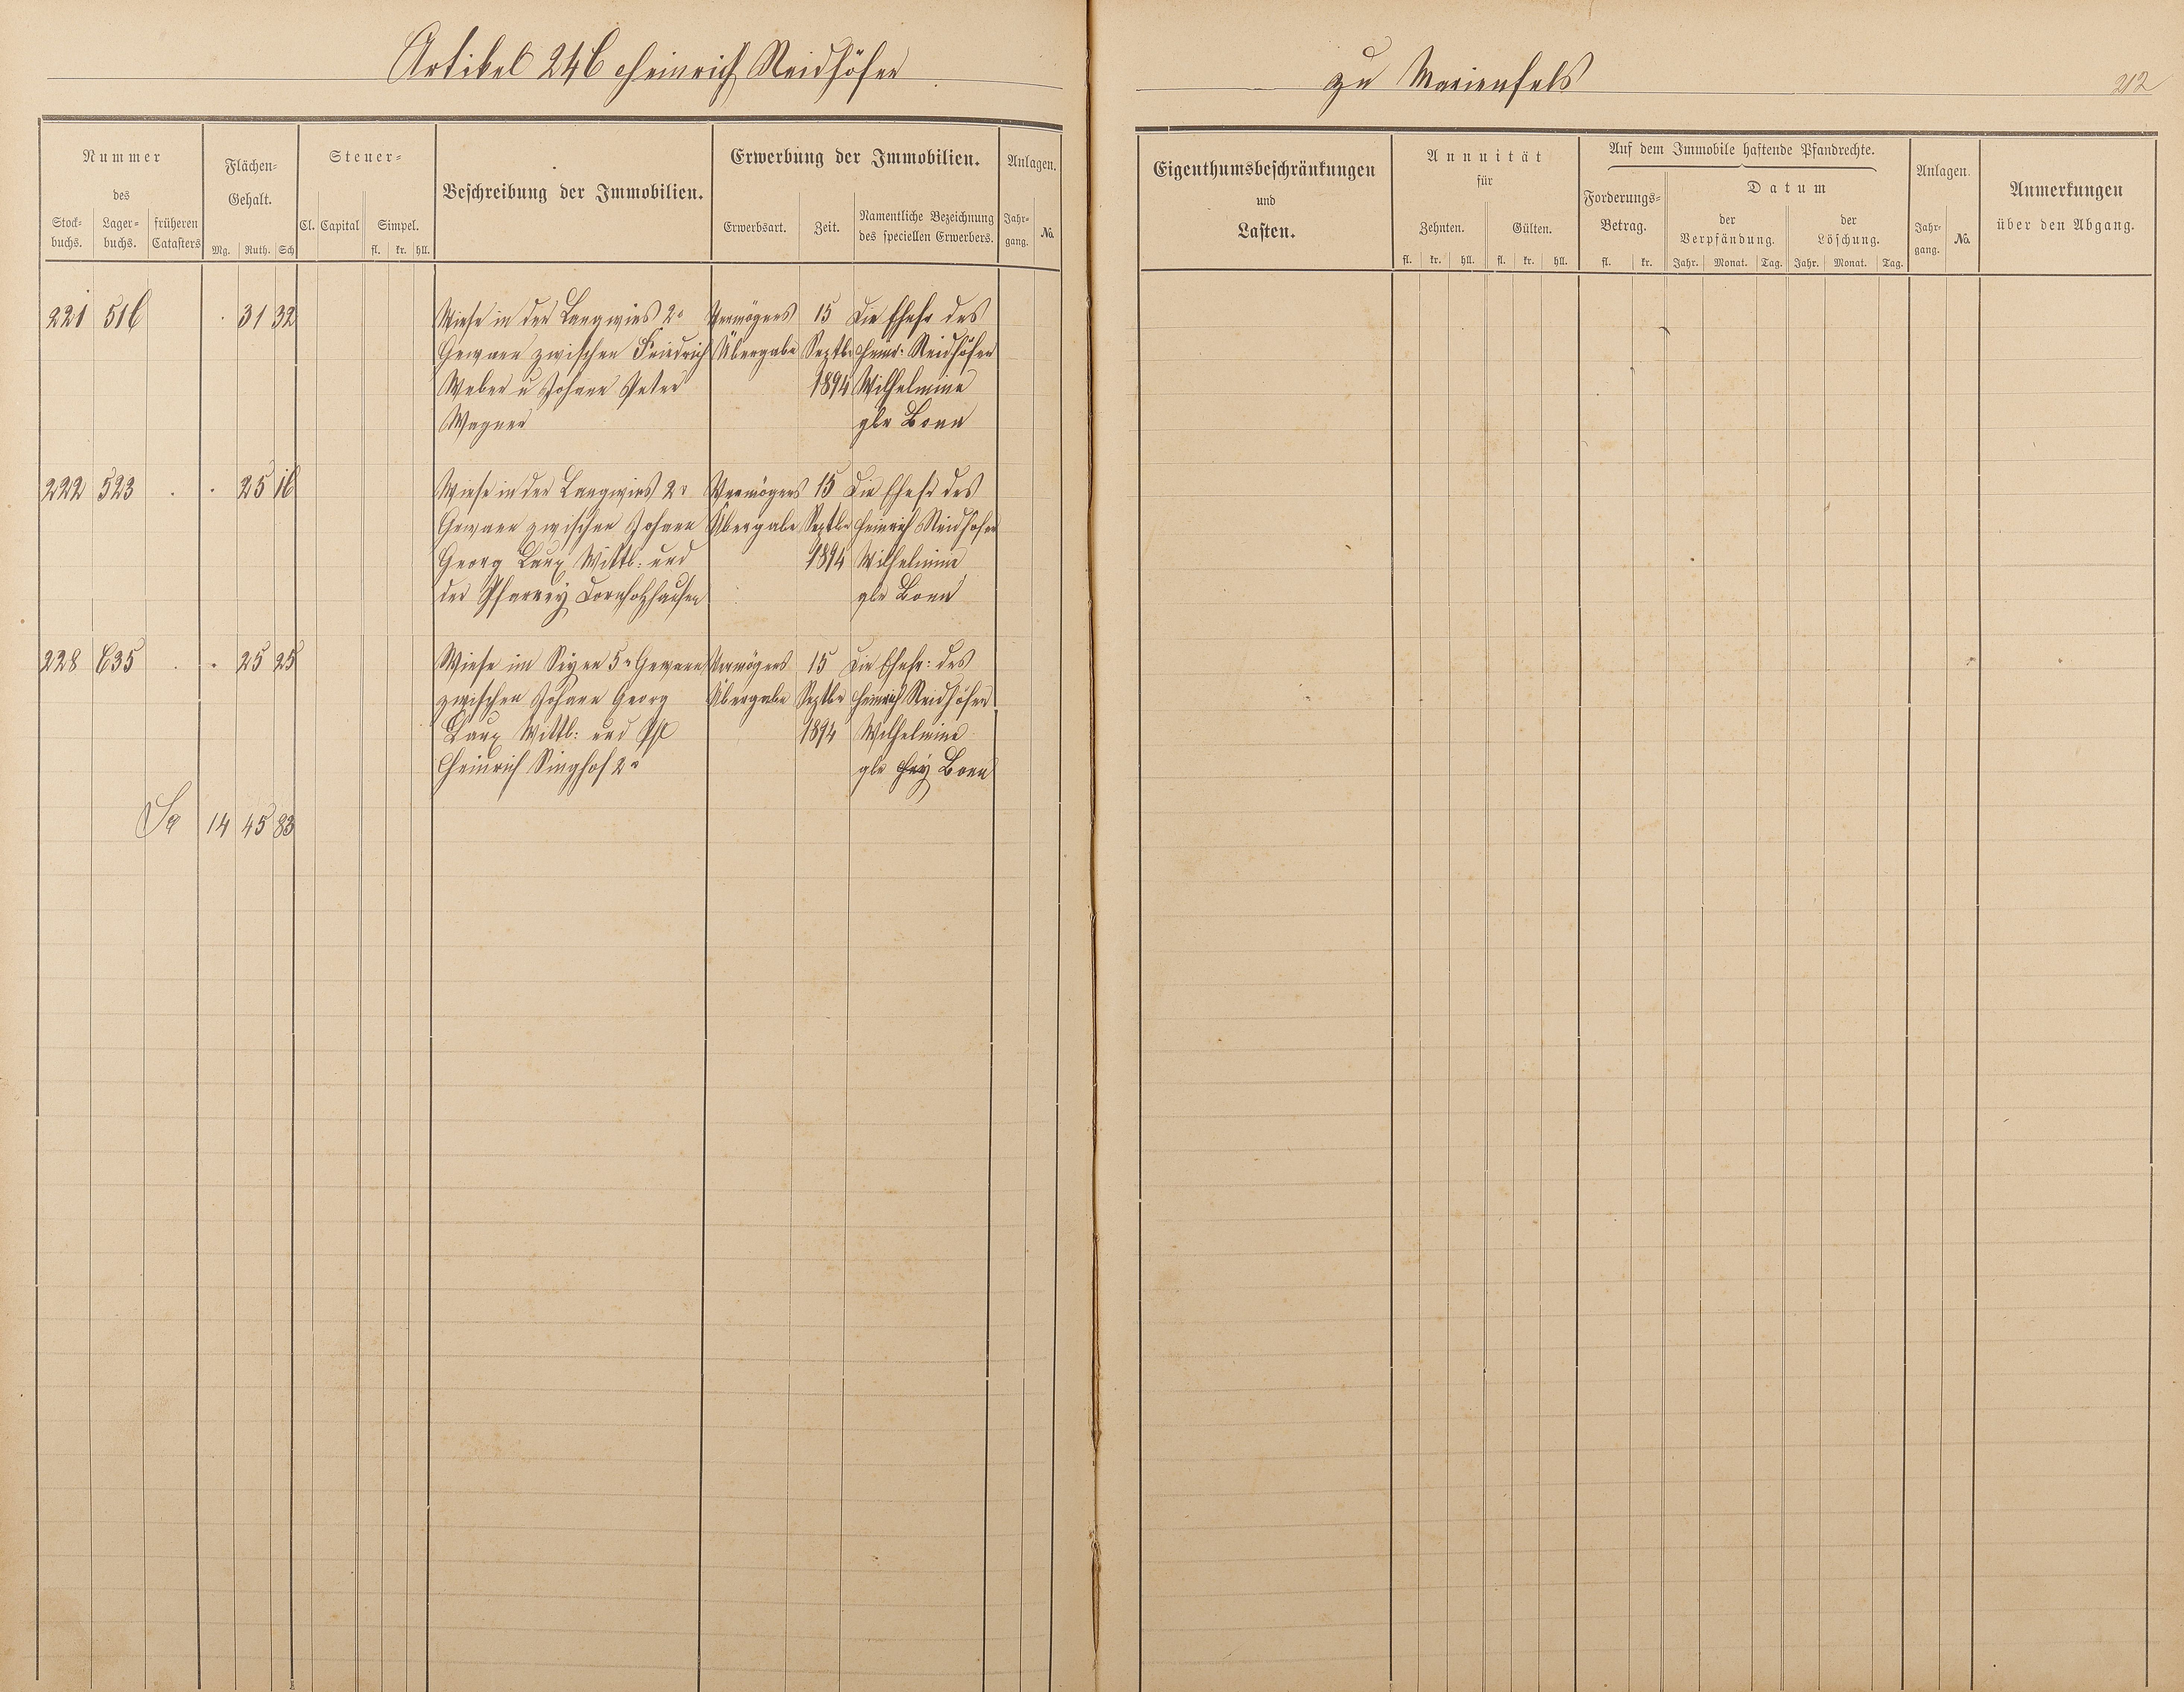 Artikel 246 Heinrich Neidhöfer
zu Marienfels
212
Nummer
des
Stock-
buchs.
Lager-
buchs.
früheren
Catasters
Flächen-
Gehalt.
Mg. Ruth. Sch
Steuer-
Cl. Capital Simpel.
fl. kr. hll.
Beschreibung der Immobilien.
Erwerbung der Immobilien.
Erwerbsart. Zeit.
Namentliche Bezeichnung
des speciellen Erwerbers.
Anlagen.
Jahr-
gang.
No.
Eigenthumsbeschränkungen
und
Lasten.
Annuität
für
Zehnten. Gülten.
fl. kr. hll. fl. kr. hll.
Auf dem Immobile haftende Pfandrechte.
Forderungs-
Betrag.
fl. kr.
Datum
der
Verpfändung.
der
Löschung.
Jahr. Monat. Tag. Jahr. Monat. Tag.
Anlagen.
Jahr-
gang.
No.
Anmerkungen
über den Abgang.
221 516 . 31 32 Wiese in der Langwies 2r Vermögens 15 Die Ehefr des
Gewann zwischen Friedrich Übergabe Septbr Heinr: Neidhöfer
Weber u Johann Peter 1894 Wilhelmine
Wagner gbr Bonn
222 523 . . 25 16 Wiese in der Langwies 2r Vermögens 15 Die Ehefr des
Gewann zwischen Johann Übergabe Septbr Heinrich Neidhöfer
Georg Laux Wittb: und 1894 Wilhelmine
der Pfarrey Dornholzhausen gbr Bonn
228 635 . . 25 25 Wiese im Seyen 5r Gewann Vermögens 15 Die Ehefr: des
zwischen Johann Georg Übergabe Septbr Heinrich Neidhöfer
Laux Wittb: und 1894 Wilhelmine
Heinrich Singhof 2r gbr Bonn
Sa 14 45 83